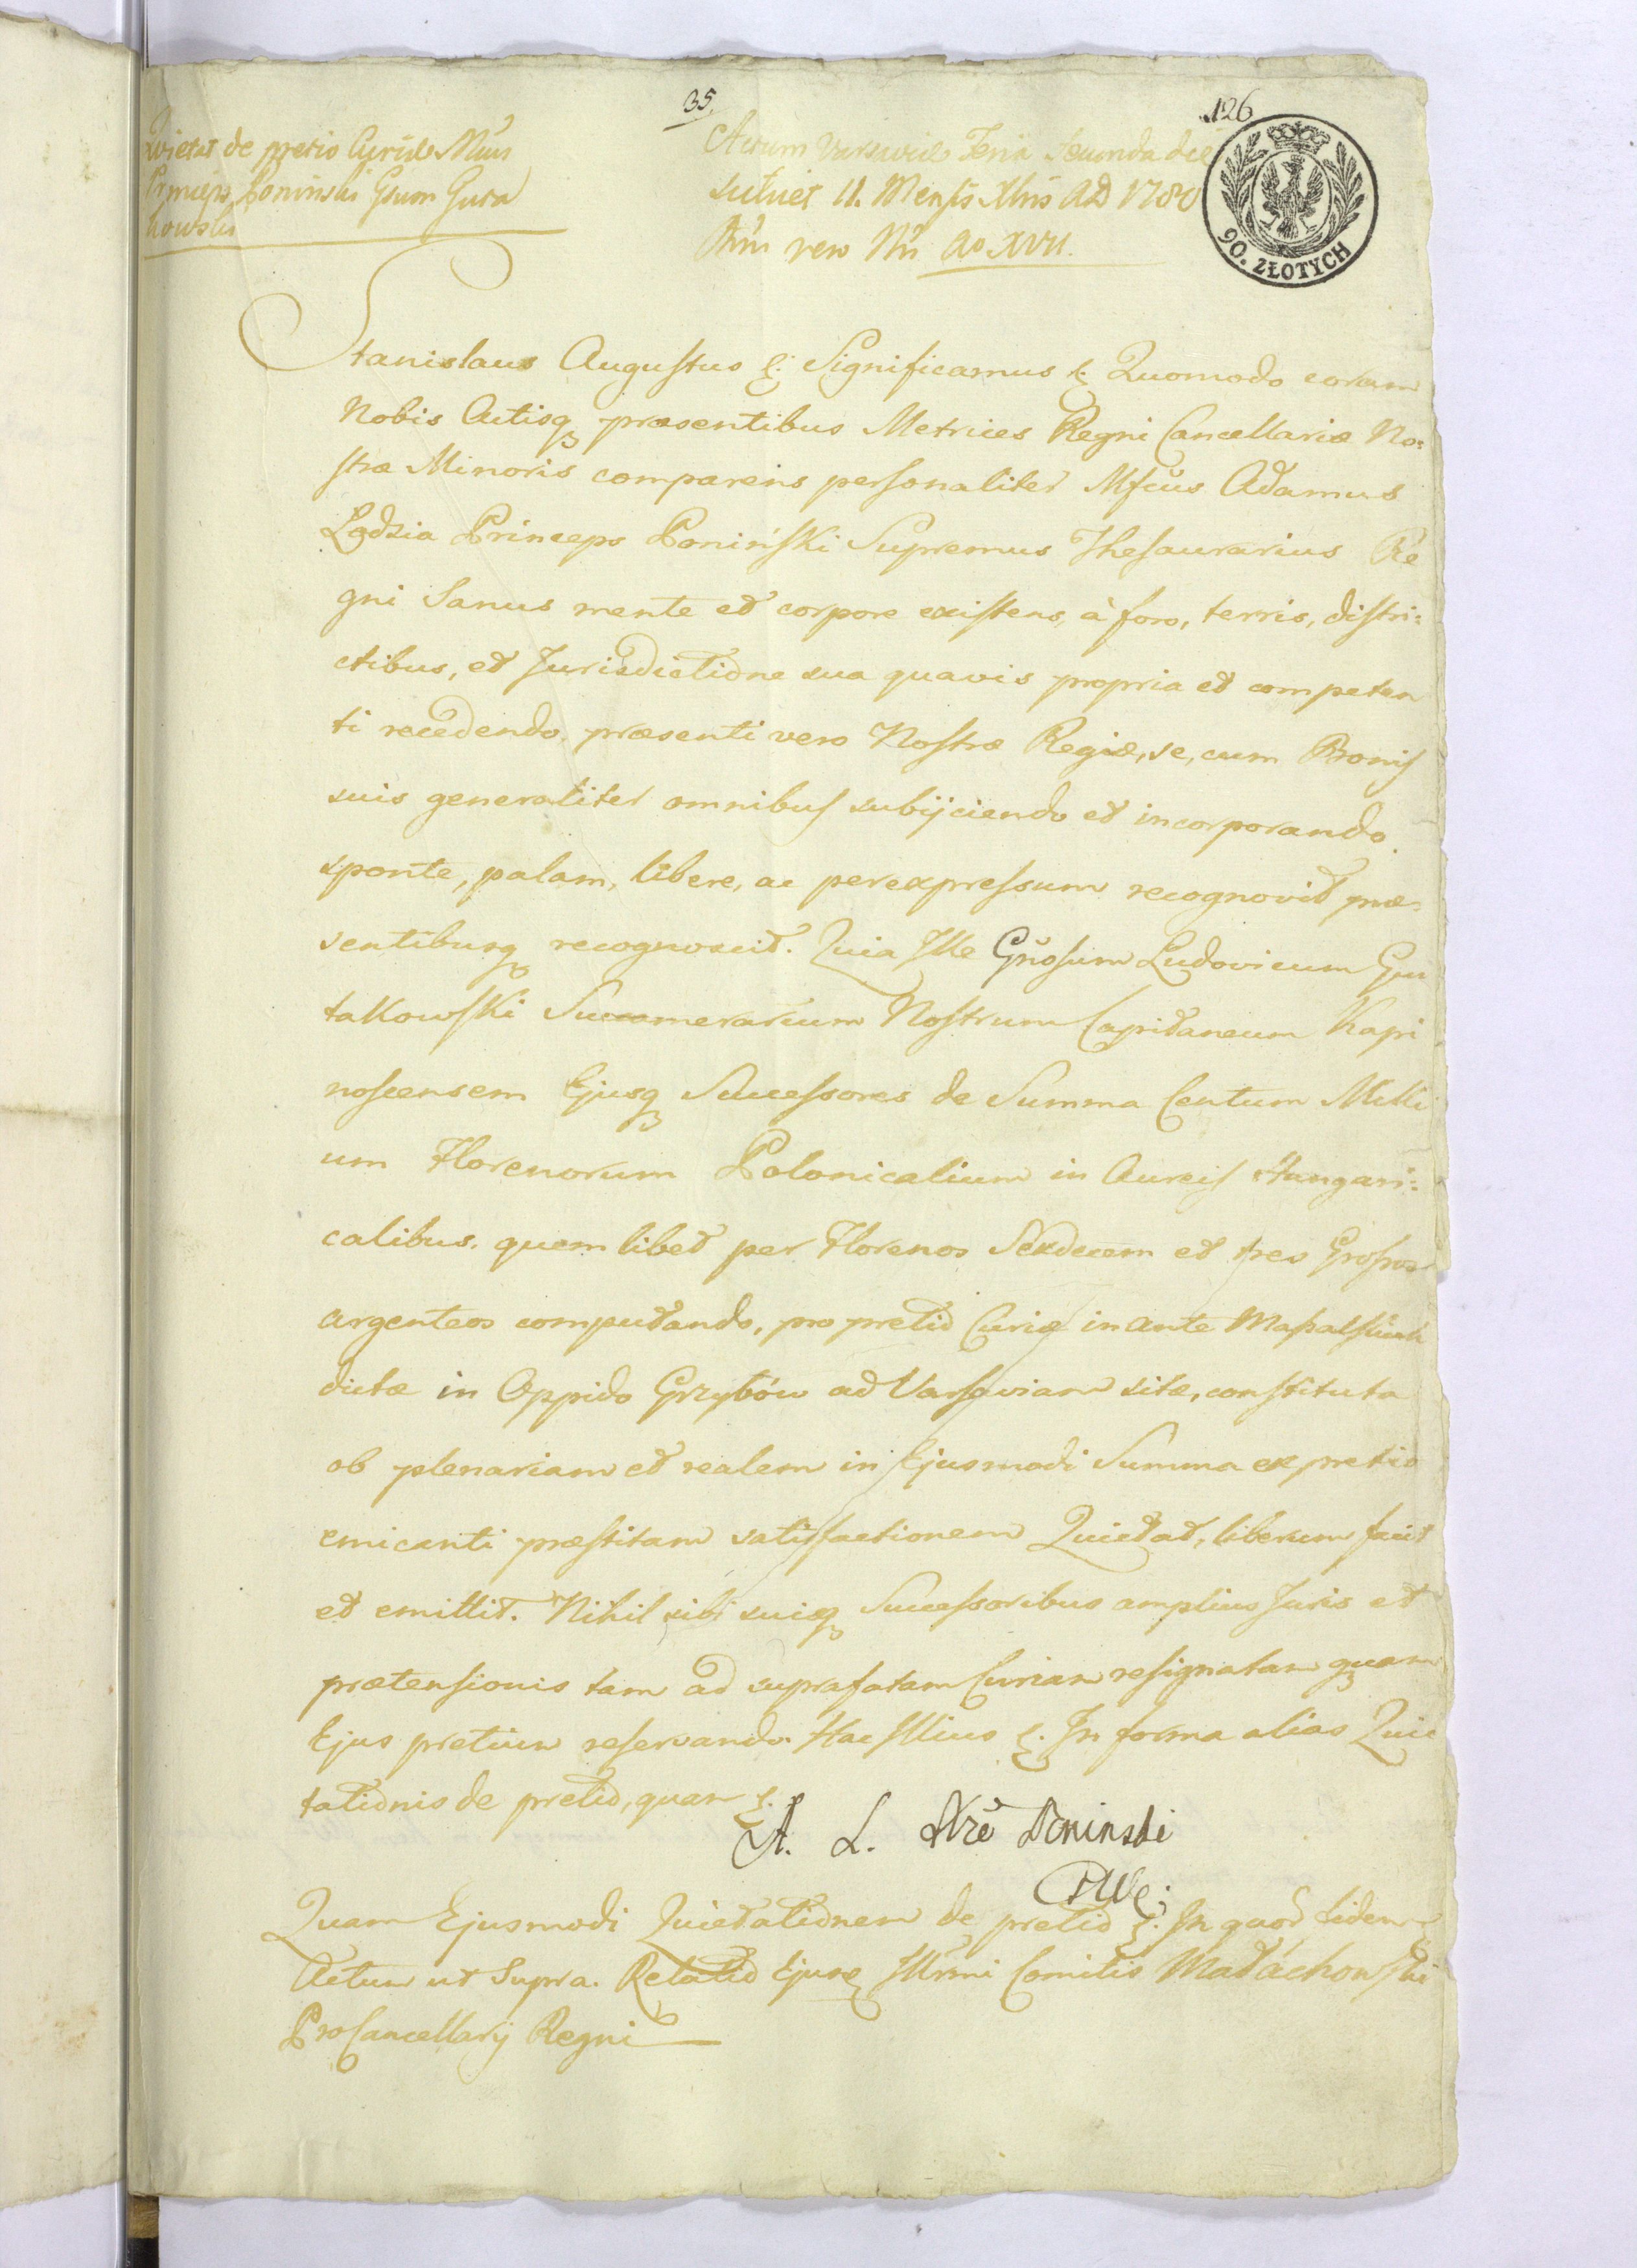 35.
126
Quietat de pretio Curiae Mcus
Princeps Poninski Gsum Guta
kowski
Actum Varsaviae Feria Secunda die
scilicet 11. Mensis Xbris AD 1780
Rni vero Nri Ao XVII.
90. ZŁOTYCH
Stanislaus Augustus &. Significamus &. Quomodo coram
Nobis Actisq praesentibus Metrices Regni Cancellariae No:
strae Minoris comparens personaliter Mfcus Adamus
Lodzia Princeps Poniński Supremus Thesaurarius Re
gni Sanus mente et corpore existens, à foro, terris, distri:
ctibus, et Jurisdictione sua quavis propria et competen
ti recedendo, praesenti vero Nostrae Regiae, se, cum Bonis
suis generaliter omnibus subijciendo et incorporando.
sponte, palam, libere, ac perexpressum recognovit prae=
sentibusq recognoscit. Quia Ille Gnosum Ludovicum Gu
takowski Succamerarium Nostrum Capitaneum Kapi
noscensem Ejusq Successores de Summa Centum Milli
um Florenorum Polonicalium in Aureis Hungari:
calibus, quemlibet per Florenos Sexdecem et tres Grossos
argenteos computando, pro pretio Curiae in ante
dictae in Oppido Grzybów ad Varsaviam sitae, constituta
ob plenariam et realem in Ejusmodi Summa ex pretio
emicanti praestitam satisfactionem Quietat, liberum facit
et emittit. Nihil sibi suisq Successoribus amplius Juris et
praetensionis tam ad suprafatam Curiam resignatam quam
Ejus pretium reservando. Hac Illius &. In forma alias Quie
tationis de pretio, quam &.
A. L. Xże Poninski
Quam Ejusmodi Quietationem de pretio &. In quor fidem &
Actum ut Supra. Relatio Ejusq Illrmi Comitis Małachowski
ProCancellarij Regni